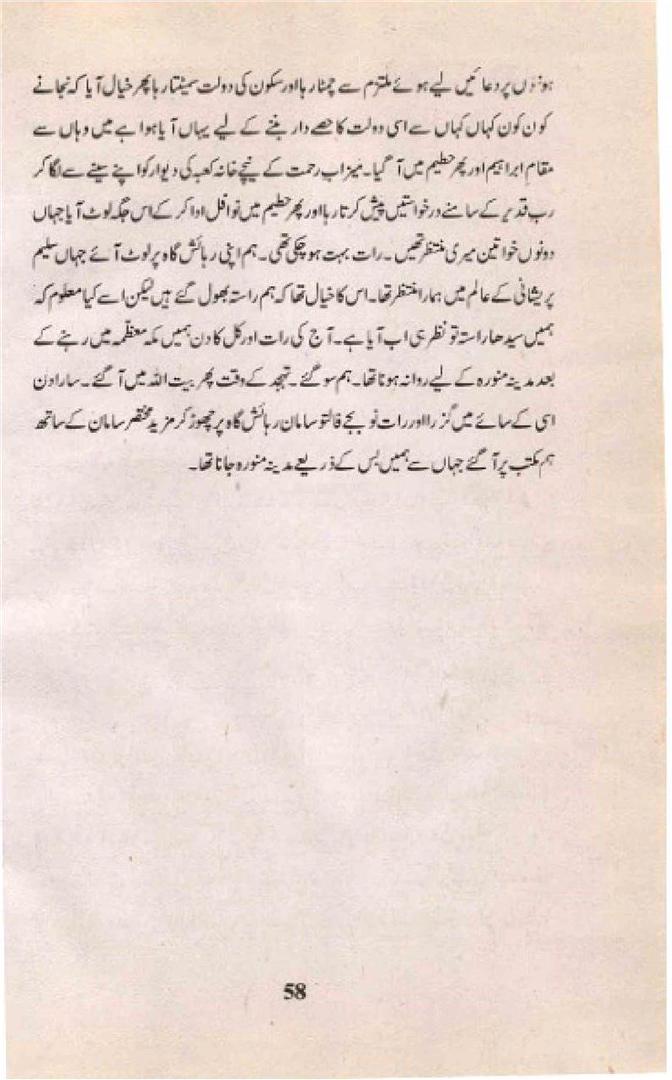 ہونٹوں پر دعائیں لیے ہوئے ملتزم سے چمٹا رہا اور سکون کی دولت سمیٹتا رہا پھر خیال آیا کہ نجانے
کون کون کہاں کہاں سے اسی دولت کا حصے دار بننے کے لیے یہاں آیا ہوا ہے میں وہاں سے
مقام ابراہیم اور پھر حطیم میں آ گیا۔ میزاب رحمت کے نیچے خانہ کعبہ کی دیوار کو اپنے سینے سے لگا کر
رب قدیر کے سامنے درخواستیں پیش کرتا رہا اور پھر حطیم میں نوافل ادا کر کے اس جگہ لوٹ آیا جہاں
دونوں خواتین میری منتظر تھیں۔ رات بہت ہو چکی تھی۔ ہم اپنی رہائش گاہ پر لوٹ آئے جہاں سلیم
پریشانی کے عالم میں ہمارا منتظر تھا۔ اس کا خیال تھا کہ ہم راستہ بھول گئے ہیں لیکن اسے کیا معلوم کہ
ہمیں سیدھا راستہ تو نظر ہی اب آیا ہے۔ آج کی رات اور کل کا دن ہمیں مکہ معظمہ میں رہنے کے
بعد مدینہ منورہ کے لیے روانہ ہونا تھا۔ ہم سو گئے۔ تہجد کے وقت پھر بیت اللہ میں آ گئے۔ سارا دن
اسی کے سائے میں گزرا اور رات نو بجے فالتو سامان رہائش گاہ پر چھوڑ کر مزید مختصر سامان کے ساتھ
ہم مکتب پر آ گئے جہاں سے ہمیں بس کے ذریعے مدینہ منورہ جانا تھا۔
58